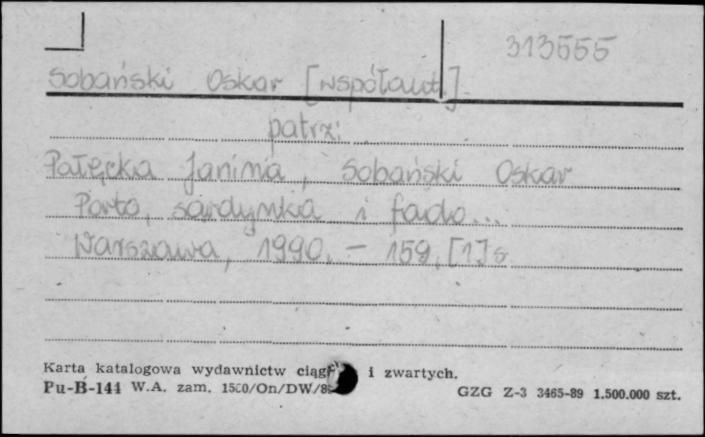 313555
Sobański Oskar [współaut.]
patrz:
Pałęcka Janina, Sobański Oskar
Porto, sardynka i fado...
Warszawa, 1990. – 159, [1] s
Karta katalogowa wydawnictw i zwartych.
Pu-B-144 W.A. zam. 1500/On/DW/8
GZG Z-3 3465-89 1.500.000 szt.